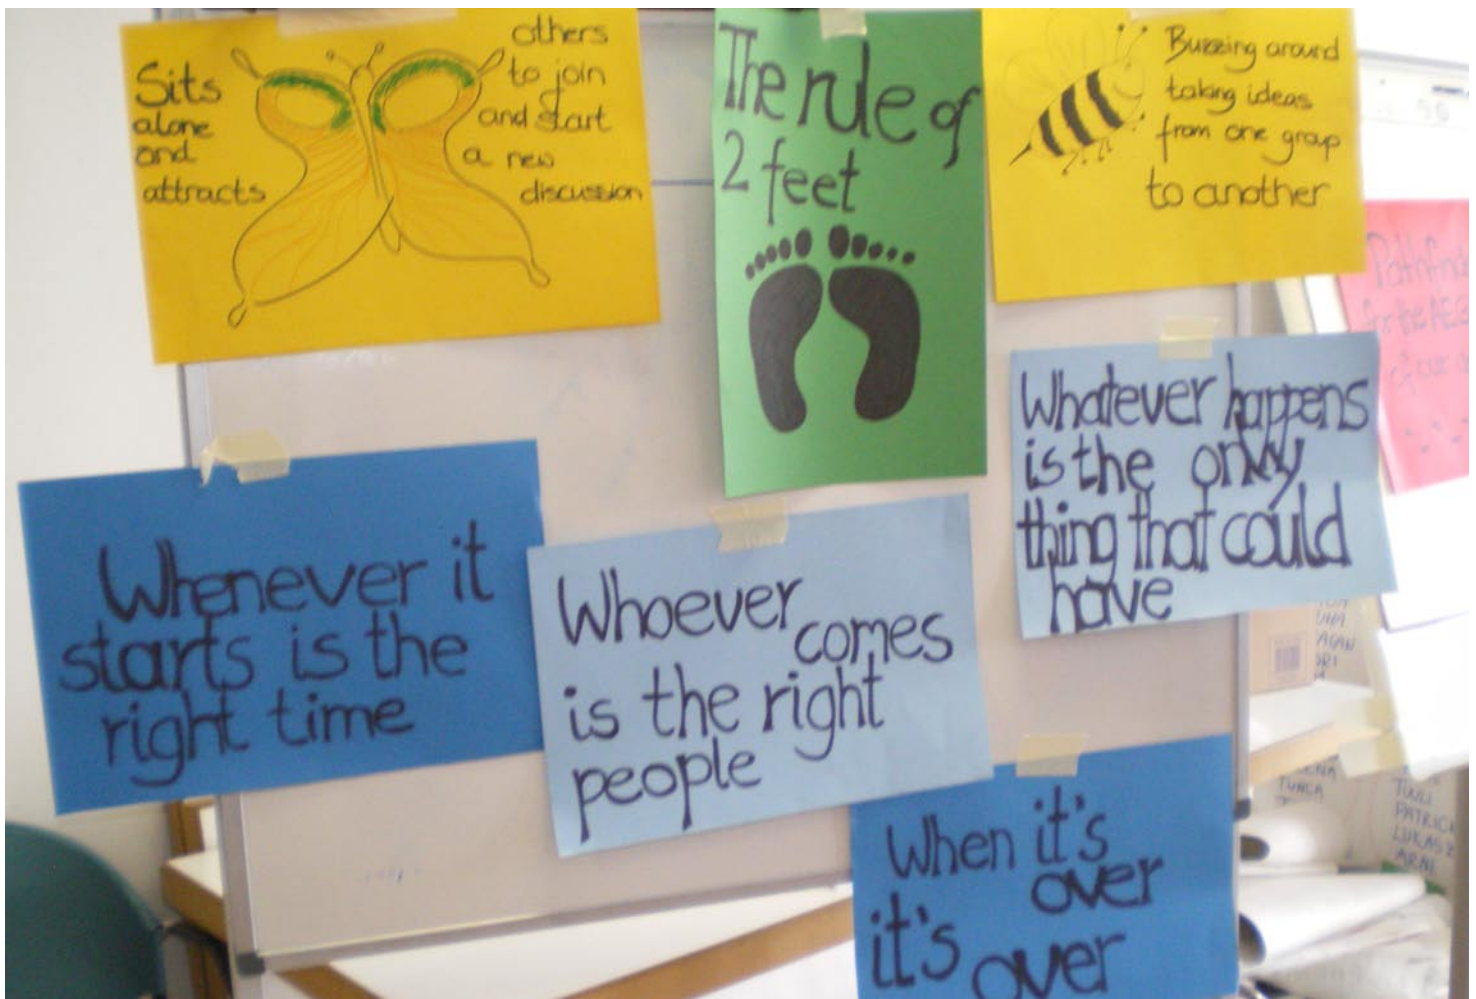 Sits
alone
and
attracts
others
to join
and start
a new
discussion
The rule of
2 feet
Buzzing around
taking ideas
from one group
to another
Whatever happens
is the only
thing that could
have
Whenever it
starts is the
right time
Whoever comes
is the right
people
When it's
over
it's over
for the
TUULI
LUKASZ
ARNE